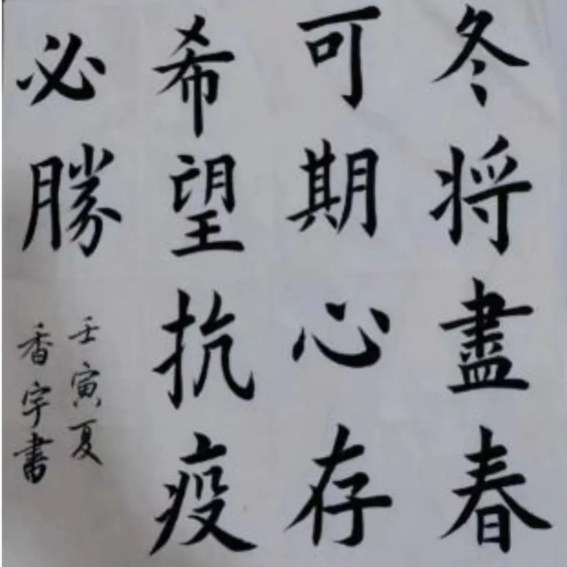 冬将盡春
可期心存
希望抗疫
必勝
壬寅夏
香宇書